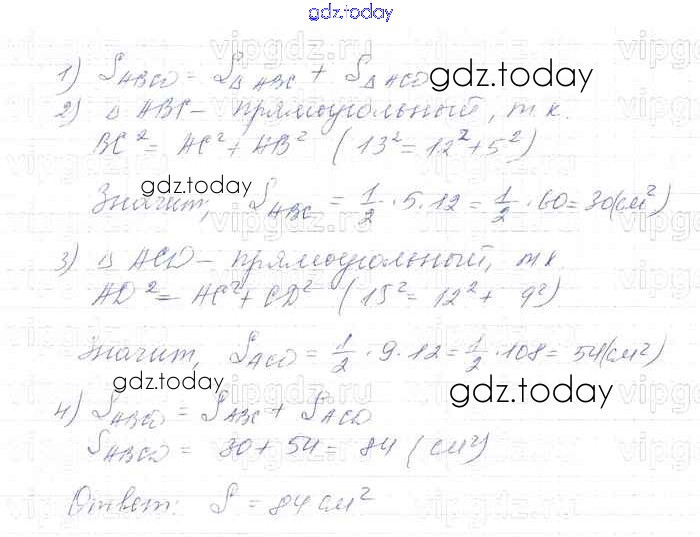 gdz.today
1) S_ABCD = S_Δ ABC + S_Δ ACD
gdz.today
2) Δ ABC – прямоугольный, т.к.
BC² = AC² + AB² (13² = 12² + 5²)
gdz.today
Значит, S_ABC = 1/2 · 5 · 12 = 1/2 · 60 = 30 (см²)
3) Δ ACD – прямоугольный, т.к.
AD² = AC² + CD² (15² = 12² + 9²)
Значит, S_ACD = 1/2 · 9 · 12 = 1/2 · 108 = 54 (см²)
gdz.today
gdz.today
4) S_ABCD = S_ABC + S_ACD
S_ABCD = 30 + 54 = 84 (см²)
Ответ: S = 84 см²
gdz.today